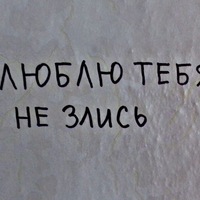 ЛЮБЛЮ ТЕБЯ
НЕ ЗЛИСЬ